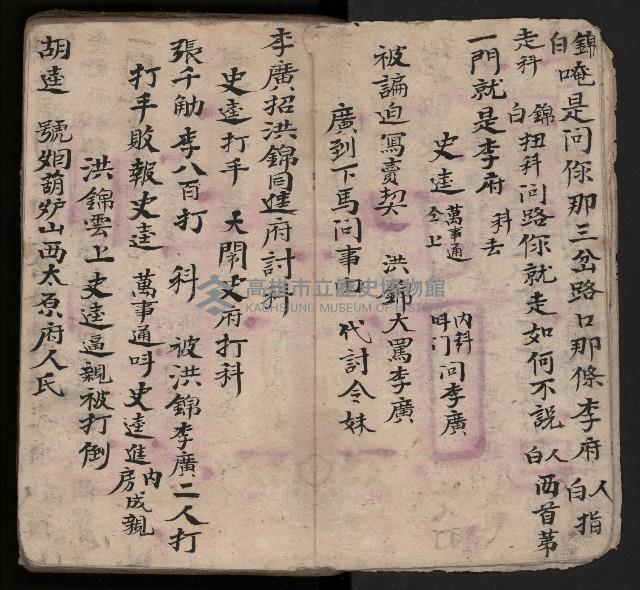 錦白唵是问你那三岔路口那條李府 人白指
走科 錦白扭科问路你就走如何不説 人白西首第
一門就是李府 科去
史達 萬事通仝上 内科叫门问李廣
被諞迫寫賣契 洪錦大罵李廣
廣到下馬问事由 代討令妹
李廣招洪錦同進府討科
史達打手 大鬧史府打科
張千觔 李八百打 科 被洪錦李廣二人打
打手敗報史達 萬事通叫史達進内房成親
洪錦雲上史達逼親被打倒
胡達 號 葫炉山西太原府人氏
高雄市立歷史博物館
KAOHSIUNG MUSEUM OF HISTORY